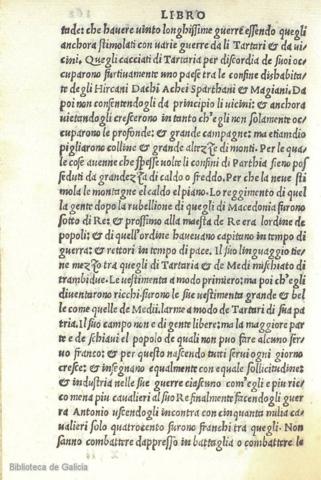 LIBRO
tadet che hauere uinto longhissime guerre essendo quegli
anchora stimolati con uarie guerre da li Tartari & da ui
cini. Quegli cacciati di Tartaria per discordia de suoi oc
cuparono furtiuamente uno paese tra le confine dishabita
te degli Hircani Dachi Achei Sparthani & Magiani. Da
poi non consentendogli da principio li uicini: & anchora
uietandogli crescerono in tanto ch'egli non solamente oc
cuparono le profonde: & grande campagne: ma etiamdio
pigliarono colline & grande altezze di monti. Per le qua
le cose auenne che spesse uolte li confini di Parthia sieno pos
seduti da grandezza di caldo o freddo. Per che la neue sti
mola le montagne el caldo el piano. Lo reggimento di quel
la gente dopo la rubellione di quegli di Macedonia furono
sotto di Re: & prossimo alla maesta de Re era lordine de
popoli: & di quell'ordine haueuano capitano in tempo di
guerra: & rettori in tempo di pace. Il suo linguaggio tie
ne mezzo tra quegli di Tartaria & de Medi mischiato di
trambidue. Le uestimenta a modo primiero: ma poi ch'egli
diuentarono ricchi. furono le sue uestimenta grande & bel
le come quelle de Medi. Larme a modo de Tartari di sua pa
tria. Il suo campo non e di gente libere: ma la maggiore par
te e de schiaui el popolo de quali non puo fare alcuno ser
uo franco: & per questo nascendo tutti serui ogni giorno
cresce: & insegnano equalmente con equale sollicitudine:
& industria nelle sue guerre ciascuno com'egli e piu ric
co mena piu caualieri al suo Re finalmente facendogli guer
ra Antonio uscendogli incontra con cinquanta milia ca
ualieri solo quatrocento furono franchi tra quegli. Non
sanno combattere dappresso in battaglia o combattere le
Biblioteca de Galicia